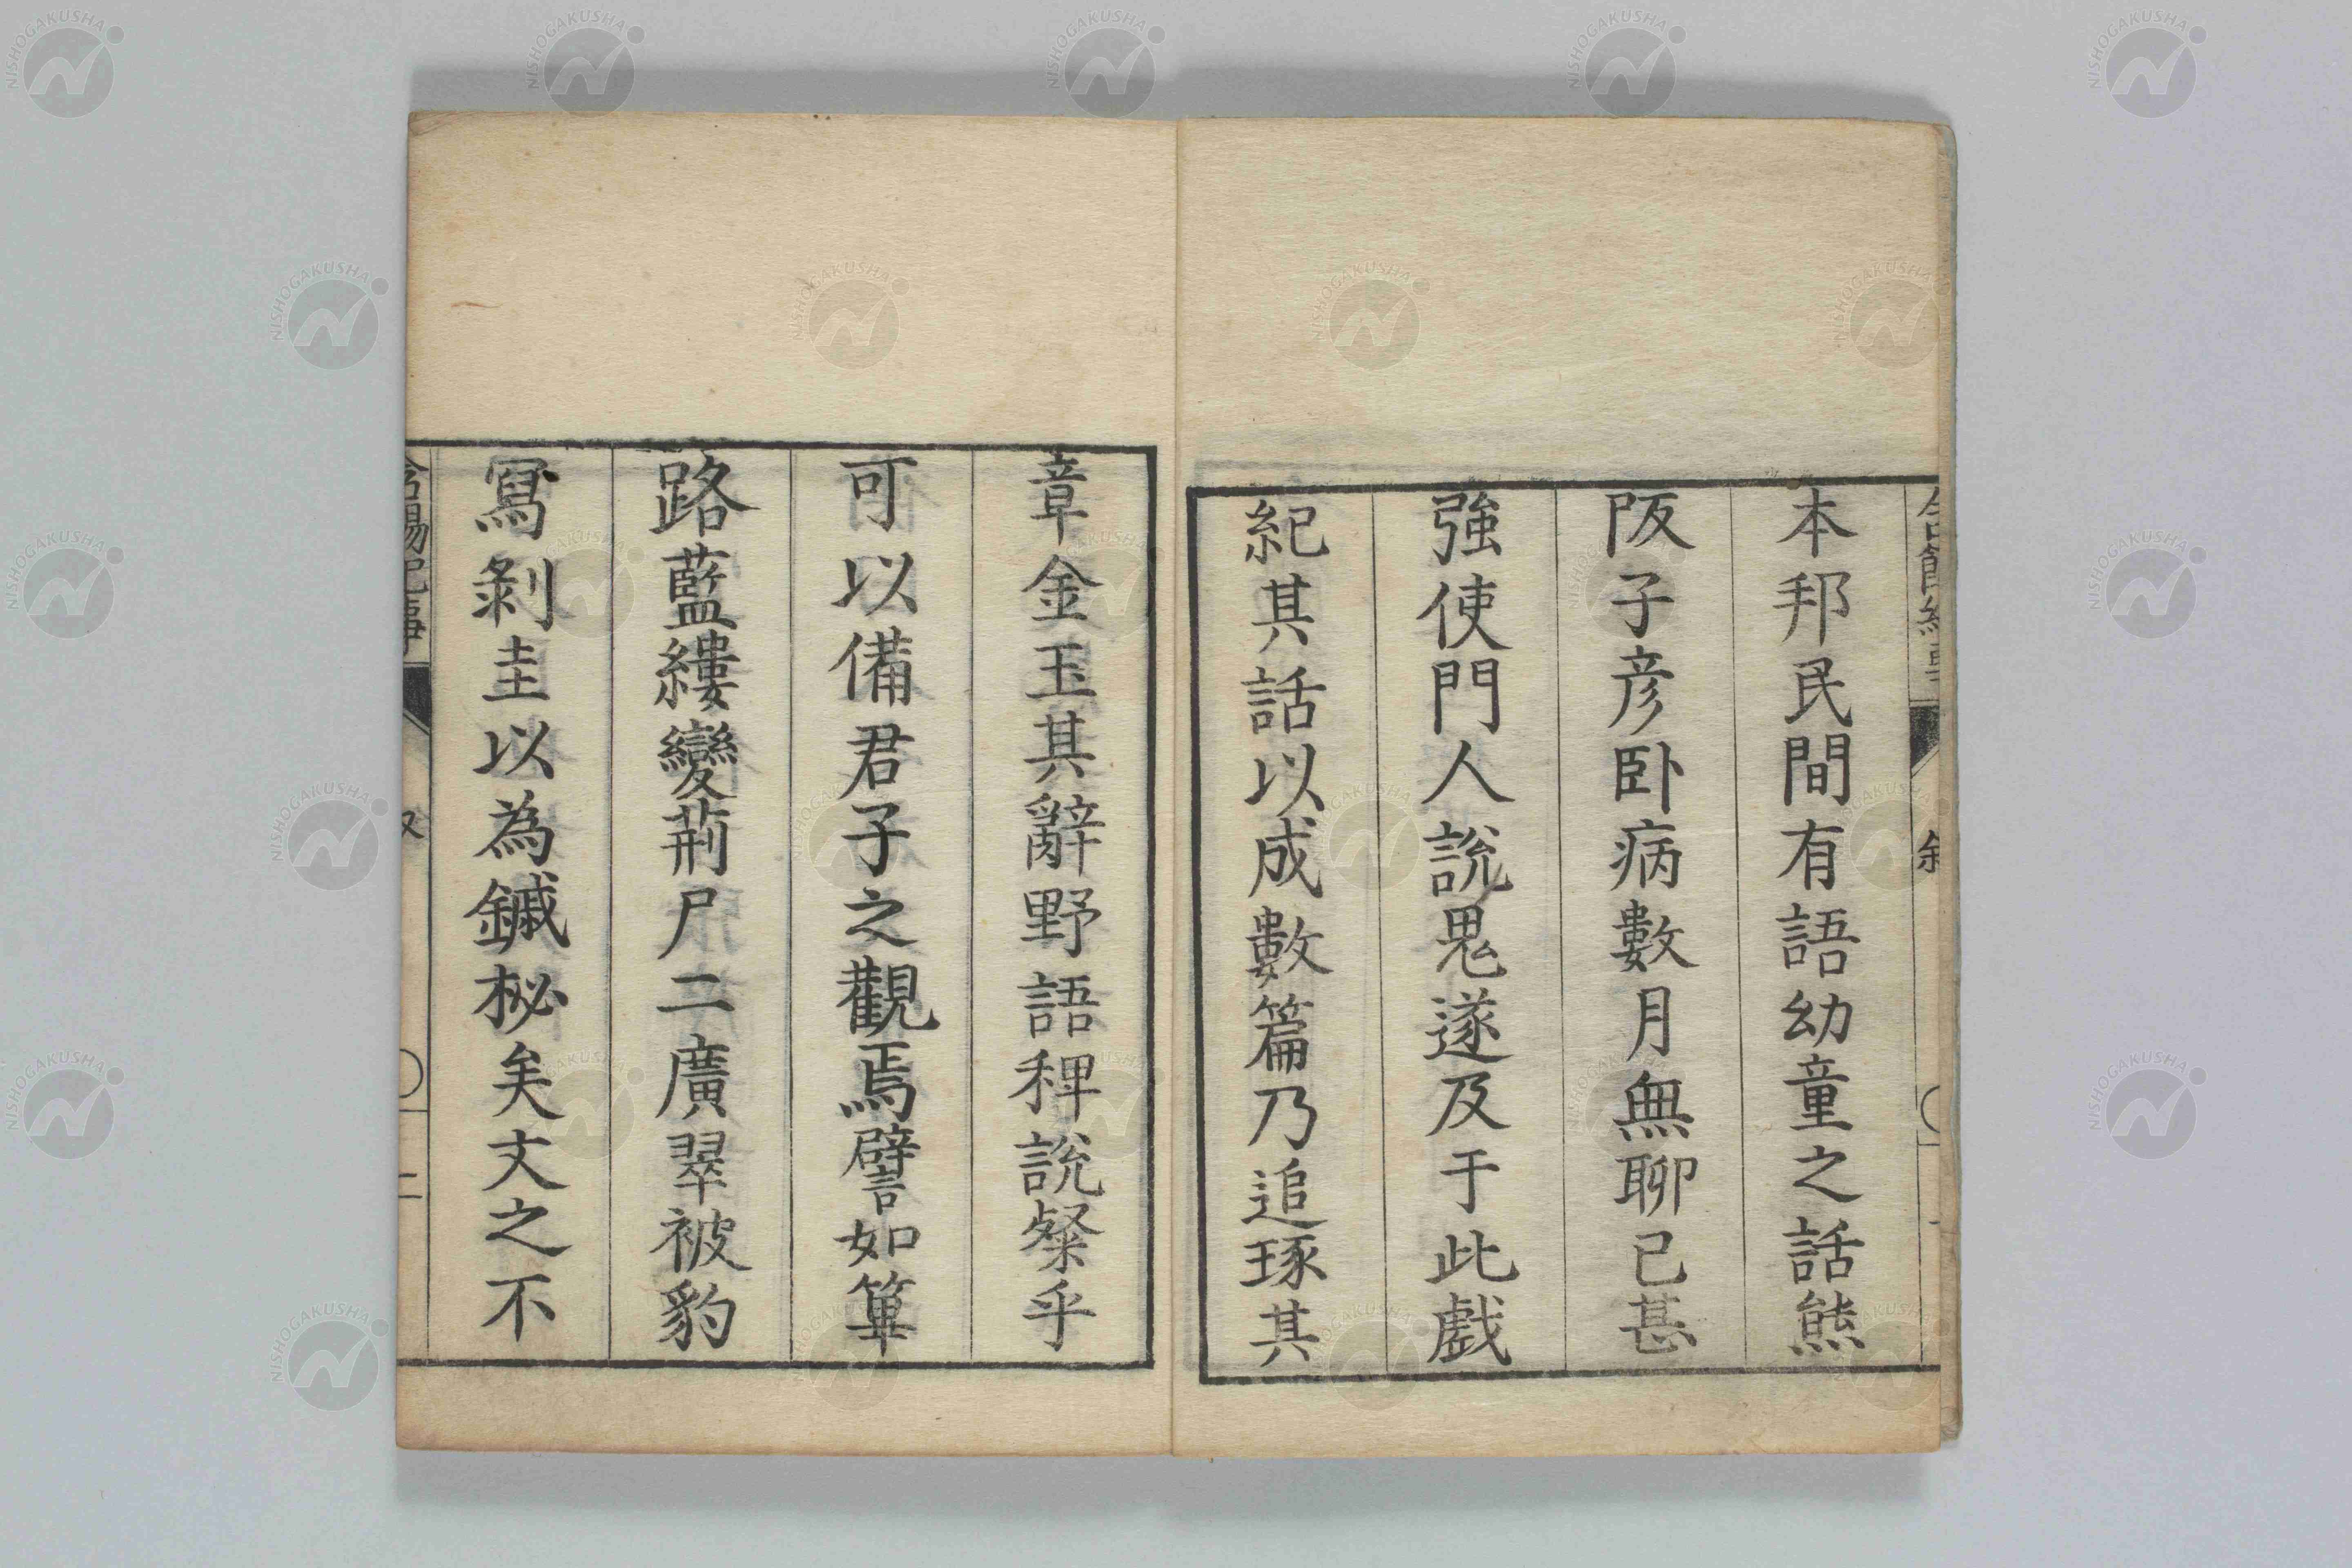 本邦民間有語幼童之話熊
阪子彦卧病數月無聊已甚
強使門人說鬼遂及于此戲
紀其話以成數篇乃追琢其
章金玉其辭野語稗說粲乎
可以備君子之觀焉譬如篳
路藍縷變荊尸二廣翠被豹
舄剝圭以為鏚柲矣文之不
NISHOGAKUSHA